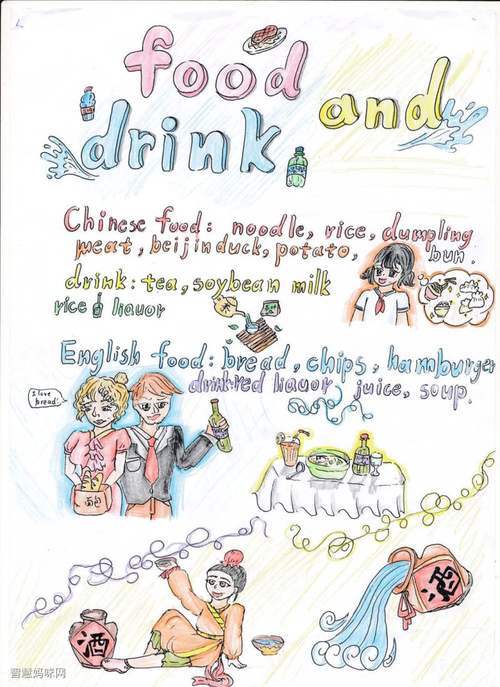 food
and
drink
Chinese food: noodle, rice, dumpling
meat, beijinduck, potato, bun.
drink: tea, soybean milk
rice liquor
English food: bread, chips, hamburger
drink: red liquor juice, soup.
I love
bread!
面包
酒
酒
智慧妈咪网